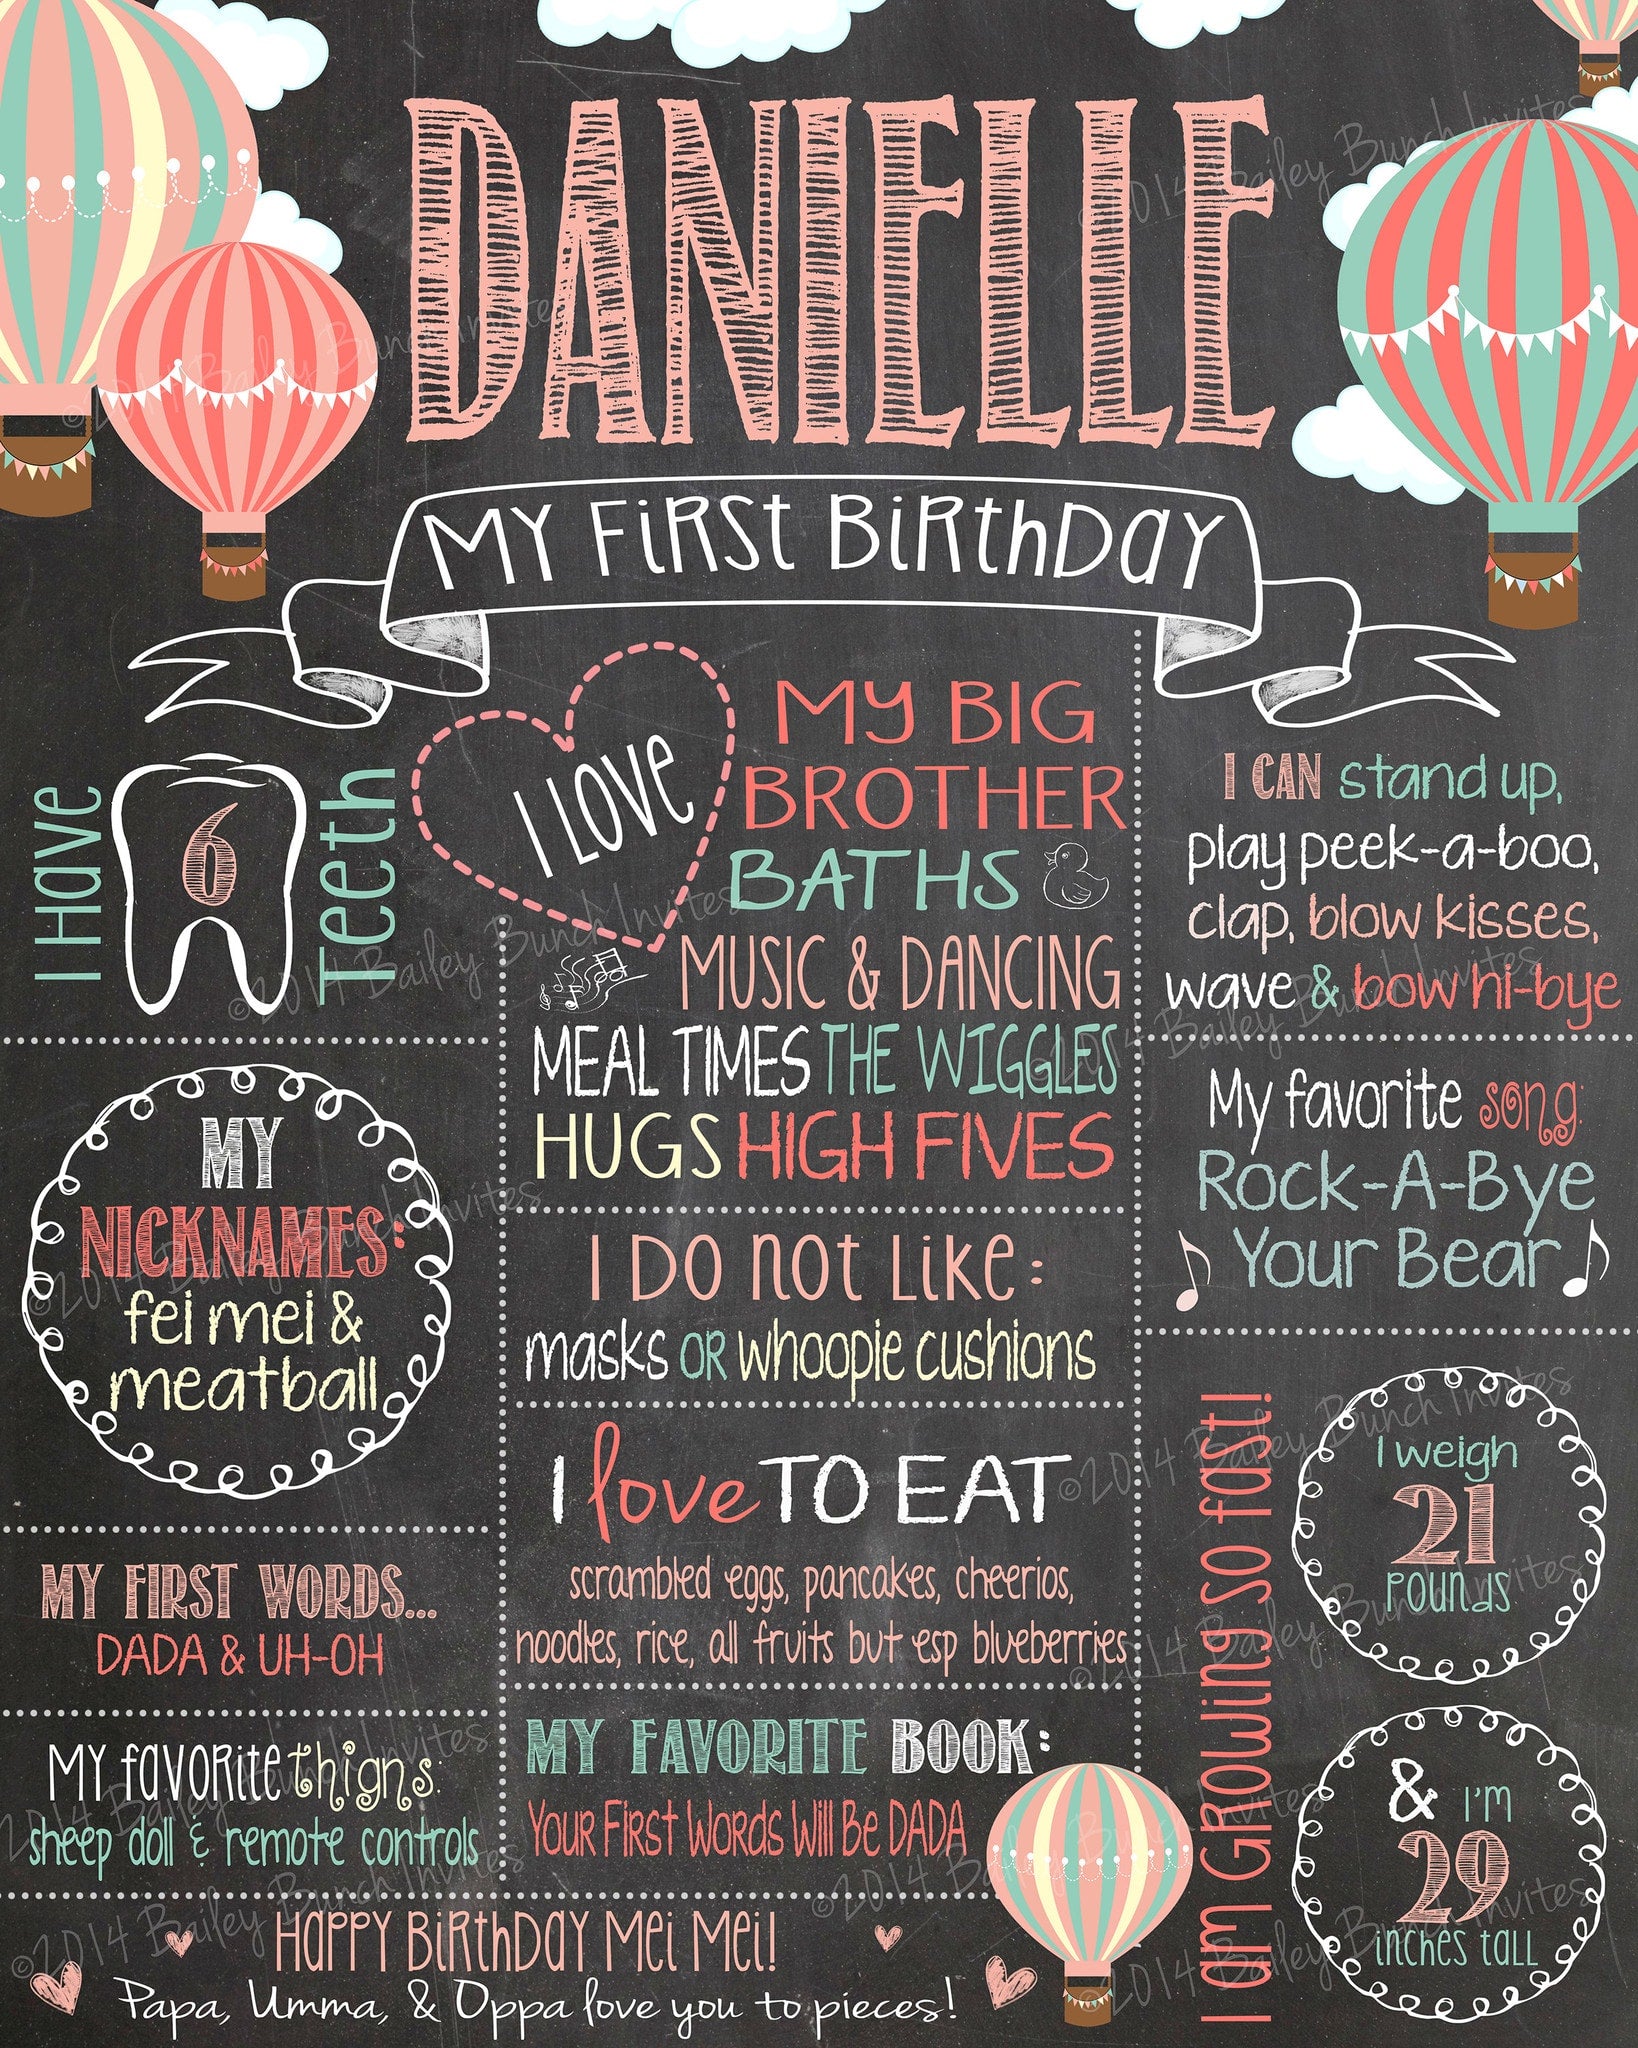 DANIELLE
MY FiRST BiRthDaY
I Have
6
Teeth
I LOVe
MY BIG
BROTHER
BATHS
MUSIC & DANCING
MEAL TIMES THE WIGGLES
HUGS HIGH FIVES
I CAN stand up,
play peek-a-boo,
clap, blow kisses,
wave & bow hi-bye
MY
NICKNAMES:
fei mei &
meatball
My favorite song:
Rock-A-Bye
Your Bear
I DO not Like:
masks OR whoopie cushions
I love TO EAT
scrambled eggs, pancakes, cheerios,
noodles, rice, all fruits but esp blueberries
MY FIRST WORDS...
DADA & UH-OH
MY faVORite thigns:
sheep doll & remote controls
MY FAVORITE BOOK:
Your First Words Will Be DADA
I am GROWING so fast!
I weigh
21
POUNDS
& I'm
29
inches tall
HaPPY BiRthDaY Mei Mei!
Papa, Umma, & Oppa love you to pieces!
©2014 Bailey Bunch Invites